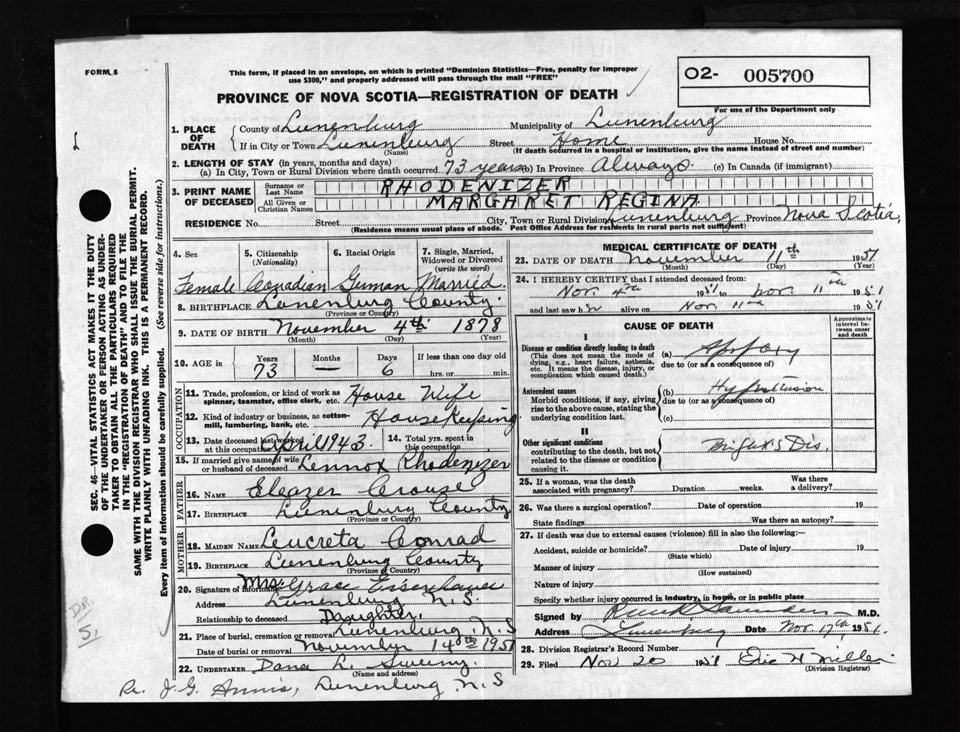 FORM 6
This form, if placed in an envelope, on which is printed "Dominion Statistics—Free, penalty for improper
use $300," and properly addressed will pass through the mail "FREE"
O2- 005700
For use of the Department only
PROVINCE OF NOVA SCOTIA—REGISTRATION OF DEATH
1. PLACE OF DEATH
County of Lunenburg Municipality of Lunenburg
If in City or Town Lunenburg Street Home House No.
(Name) (If death occurred in a hospital or institution, give the name instead of street and number)
2. LENGTH OF STAY (in years, months and days)
(a) In City, Town or Rural Division where death occurred 73 years (b) In Province Always (c) In Canada (if immigrant)
3. PRINT NAME OF DECEASED
Surname or Last Name RHODENIZER
All Given or Christian Names MARGARET REGINA
RESIDENCE No. Street City, Town or Rural Division Lunenburg Province Nova Scotia
(Residence means usual place of abode. Post Office Address for residents in rural parts not sufficient)
SEC. 46—VITAL STATISTICS ACT MAKES IT THE DUTY
OF THE UNDERTAKER OR PERSON ACTING AS UNDER-
TAKER TO OBTAIN ALL THE PARTICULARS REQUIRED
IN THE "REGISTRATION OF DEATH" AND TO FILE THE
SAME WITH THE DIVISION REGISTRAR WHO SHALL ISSUE THE BURIAL PERMIT.
WRITE PLAINLY WITH UNFADING INK. THIS IS A PERMANENT RECORD.
Every item of information should be carefully supplied. (See reverse side for instructions.)
4. Sex 5. Citizenship (Nationality) 6. Racial Origin 7. Single, Married, Widowed or Divorced (write the word)
Female Canadian German Married
8. BIRTHPLACE Lunenburg County
(Province or Country)
9. DATE OF BIRTH November 4th 1878
(Month) (Day) (YEAR)
10. AGE IN Years Months Days If less than one day old
73 — 6 hrs. or min.
OCCUPATION
11. Trade, profession, or kind of work as spinner, teamster, office clerk, etc. House Wife
12. Kind of industry or business, as cotton-mill, lumbering, bank, etc. House Keeping
13. Date deceased last worked at this occupation April 1943 14. Total yrs. spent in this occupation
15. If married give name of wife or husband of deceased Lennox Rhodenizer
FATHER
16. NAME Eleazer Crouse
17. BIRTHPLACE Lunenburg County
(Province or Country)
MOTHER
18. MAIDEN NAME Leucreta Conrad
19. BIRTHPLACE Lunenburg County
(Province or Country)
20. Signature of informant Mrs Grace Eisenhauer
Address Lunenburg N.S.
Relationship to deceased Daughter
21. Place of burial, cremation or removal Lunenburg N.S
Date of burial or removal November 14th 1951
22. UNDERTAKER Dana L. Sweeny
(Name and address)
J.G. Annis, Lunenburg N.S
MEDICAL CERTIFICATE OF DEATH
23. DATE OF DEATH November 11th 1951
(Month) (Day) (Year)
24. I HEREBY CERTIFY that I attended deceased from:
Nov. 4th 1951 to Nov. 11th 1951
and last saw h alive on Nov 11th 1951
CAUSE OF DEATH
Approximate interval between onset and death
I
Disease or condition directly leading to death (a)
(This does not mean the mode of dying, e.g., heart failure, asthenia, etc. It means the disease, injury, or complication which caused death.)
due to (or as a consequence of)
Antecedent causes (b) Hypertension
Morbid conditions, if any, giving rise to the above cause, stating the underlying condition last.
due to (or as a consequence of)
(c)
II
Other significant conditions
contributing to the death, but not related to the disease or condition causing it.
Brights Dis.
25. If a woman, was the death associated with pregnancy? Duration weeks. Was there a delivery?
26. Was there a surgical operation? Date of operation 19
State findings Was there an autopsy?
27. If death was due to external causes (violence) fill in also the following:—
Accident, suicide or homicide? Date of injury 19
(State which)
Manner of injury
(How sustained)
Nature of injury
Specify whether injury occurred in industry, in home, or in public place
Signed by Saunders M.D.
Address Lunenburg Date Nov. 17th, 1951.
28. Division Registrar's Record Number
29. Filed Nov 20 1951
(Division Registrar)